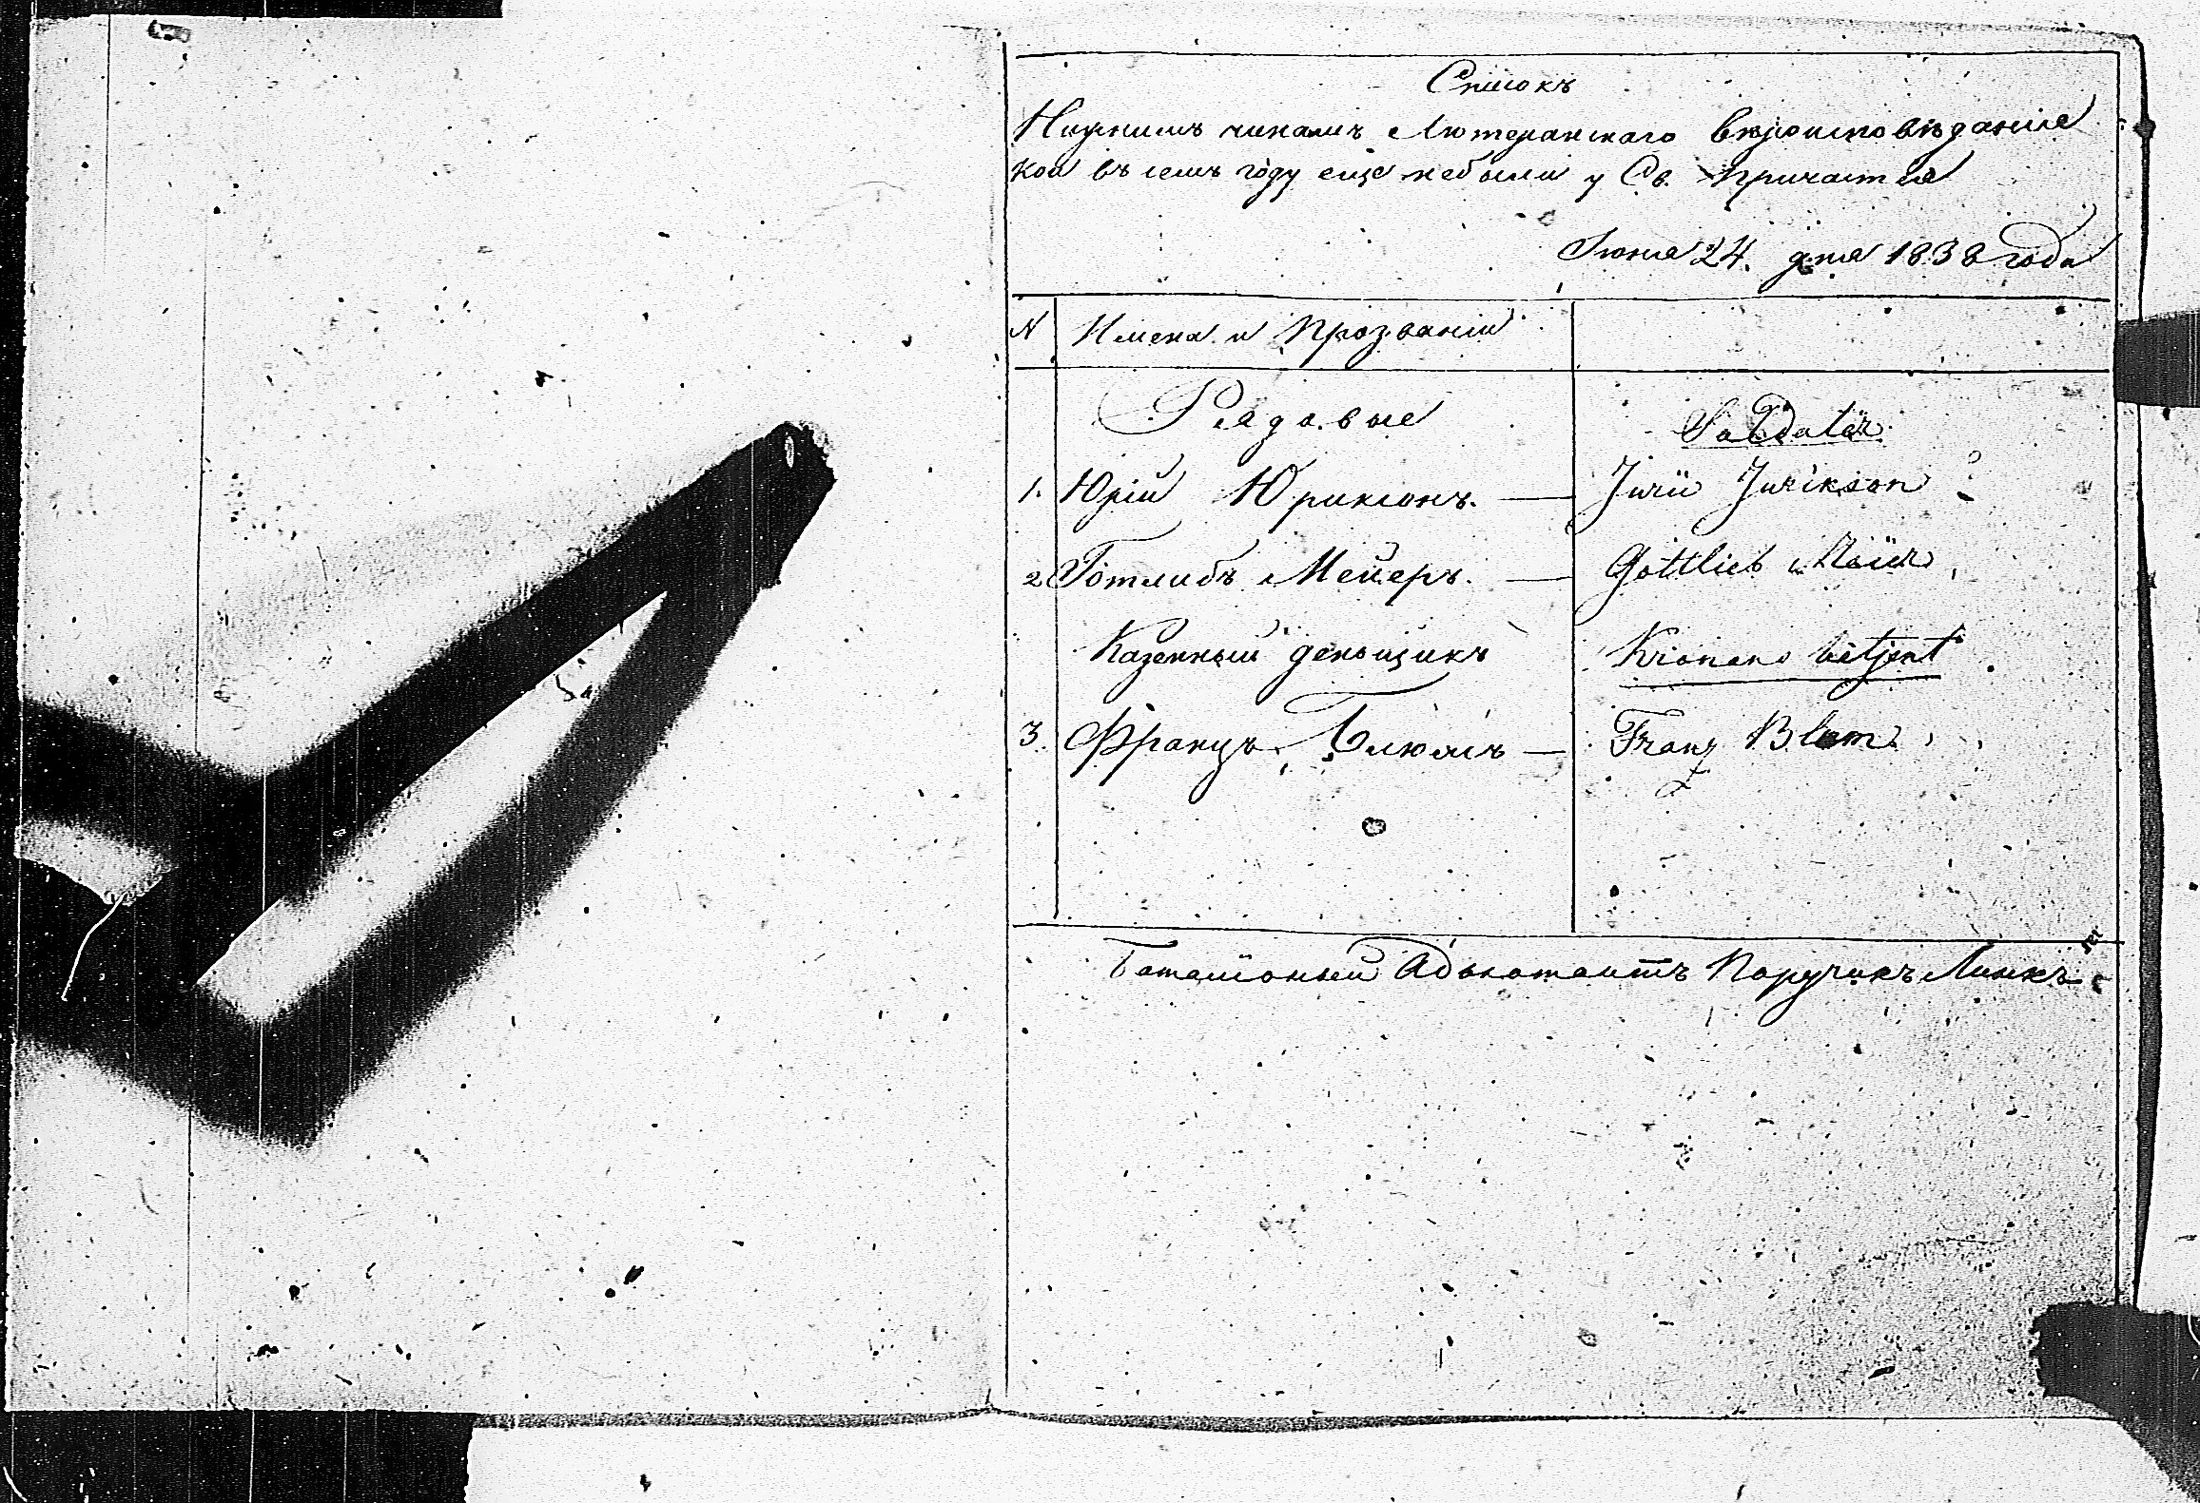 Списокъ
Нижнимъ чинамъ Лютеранскаго Вѣроисповѣданія
кои въ семъ году еще небыли у Св. Причастія
Іюня 24. дня 1838 года
N Имена и Прозваніи
Рядовые Soldater
1. Юрій Юриксонъ. — Jurii Jurikson
2 Готлибъ Мейеръ. — Gottlieb Meier
Казенный деньщикъ Kronens betjent
3. Францъ Блюмъ — Franz Blum
Баталіоный Адьютантъ Поручикъ Линкъ